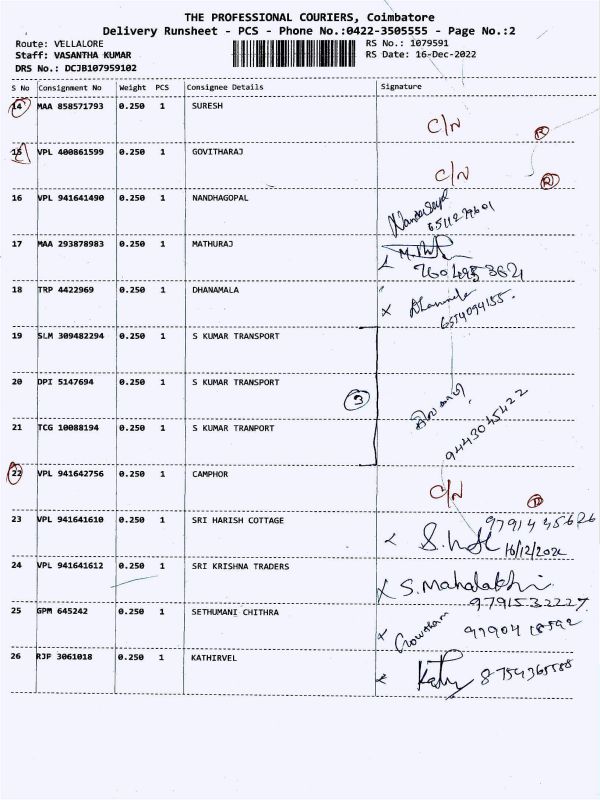 THE PROFESSIONAL COURIERS, Coimbatore
Delivery Runsheet - PCS - Phone No.:0422-3505555 - Page No.:2
Route: VELLALORE RS No.: 1079591
Staff: VASANTHA KUMAR RS Date: 16-Dec-2022
DRS No.: DCJB107959102
S No Consignment No Weight PCS Consignee Details Signature
14 MAA 858571793 0.250 1 SURESH
C/N R
15 VPL 400861599 0.250 1 GOVITHARAJ
C/N R
16 VPL 941641490 0.250 1 NANDHAGOPAL
17 MAA 293878983 0.250 1 MATHURAJ
18 TRP 4422969 0.250 1 DHANAMALA
6574094155.
19 SLM 309482294 0.250 1 S KUMAR TRANSPORT
20 DPI 5147694 0.250 1 S KUMAR TRANSPORT
3
21 TCG 10088194 0.250 1 S KUMAR TRANPORT
9443045422
22 VPL 941642756 0.250 1 CAMPHOR
C/N
23 VPL 941641610 0.250 1 SRI HARISH COTTAGE
24 VPL 941641612 0.250 1 SRI KRISHNA TRADERS
x S. Mahalakshmi
9791532227.
25 GPM 645242 0.250 1 SETHUMANI CHITHRA
x Gowtham 9790418592
26 RJP 3061018 0.250 1 KATHIRVEL